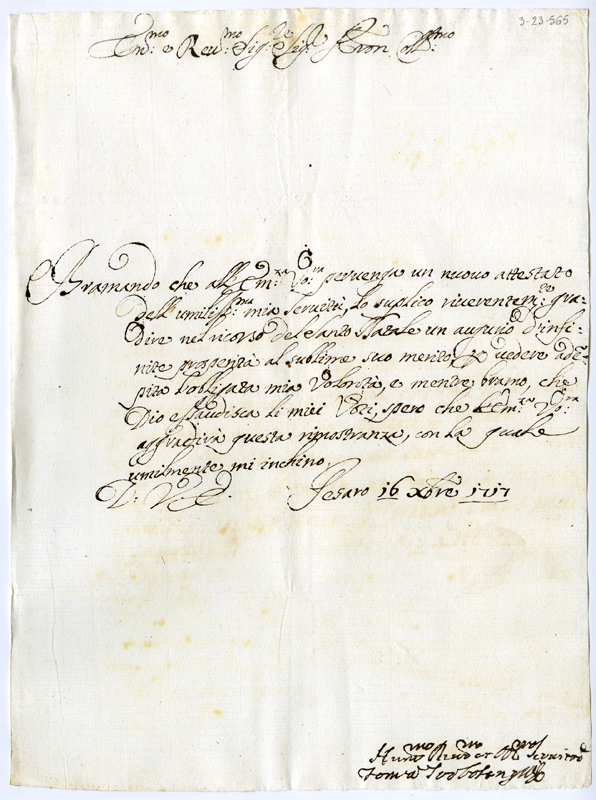 3-23-565
Em:mo e Reu:mo Sig:re Sig:re Pron Coll:mo
Bramando che all'Em:za Vo:ra peruenga un nuovo attestato
dell'umiliss:ma mia seruitù, Lo suplico riuerentem:te gra-
dire nel ricorso del Santo Natale un augurio d'infi-
nite prosperità al sublime suo merito, per vedere ade-
pita l'obligata mia Volontà, e mentre bramo, che
Dio essaudisca li miei Voti, spero che l'Em:za Vo:ra
aggradirà questa rimostranza, con la quale
umilmente mi inchino.
D: V: E: Pesaro 16 Xbre 1717
Hum:mo Deu:mo et Obl:mo Seruitore